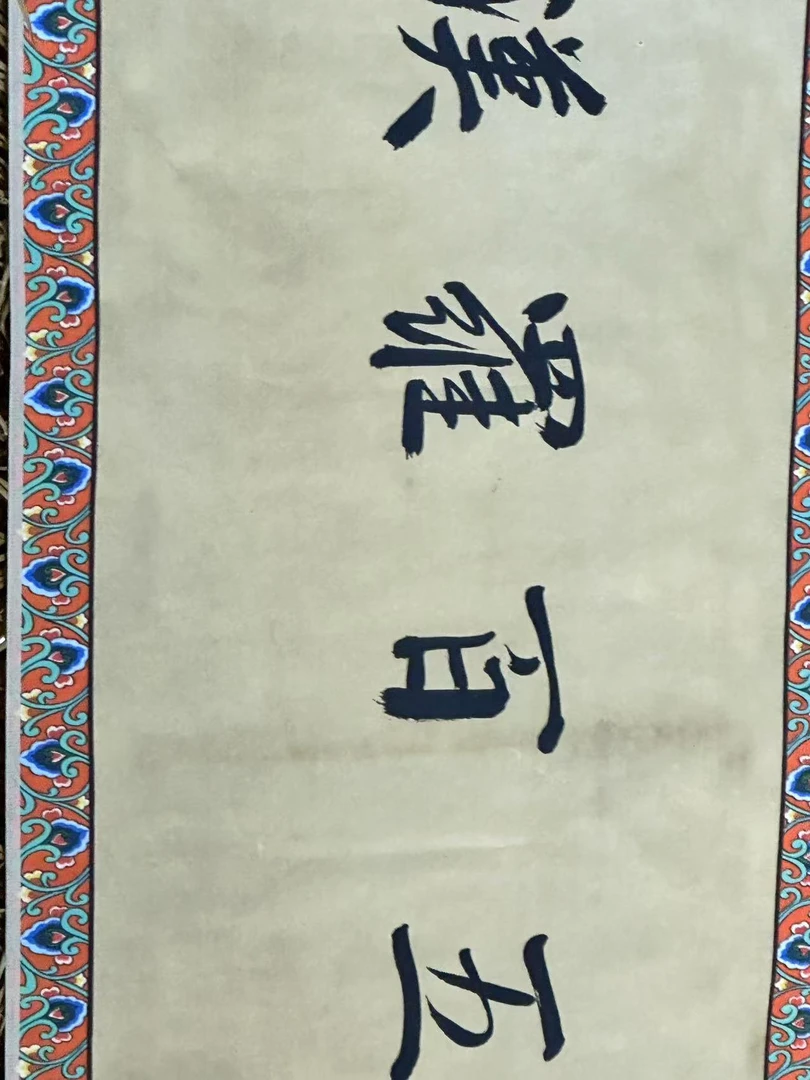 五百羅漢